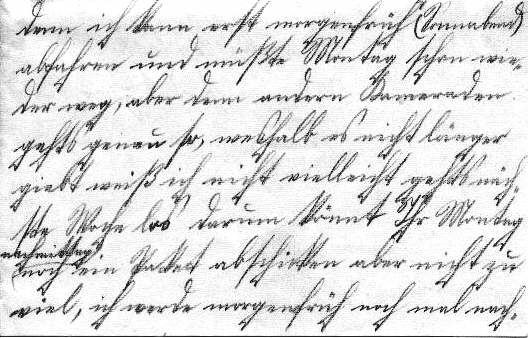 denn ich kann erst morgenfrüh (Sonnabend)
abfahren und müßte Montag schon wie-
der weg, aber denn andern Kameraden
gehts genau so, weshalb es nicht länger
giebt weiß ich nicht vielleicht gehts näch-
ste Woche los darum könnt Ihr Montag
nachmittag
noch ein Paket abschicken aber nicht zu
viel, ich werde morgenfrüh noch mal nach-